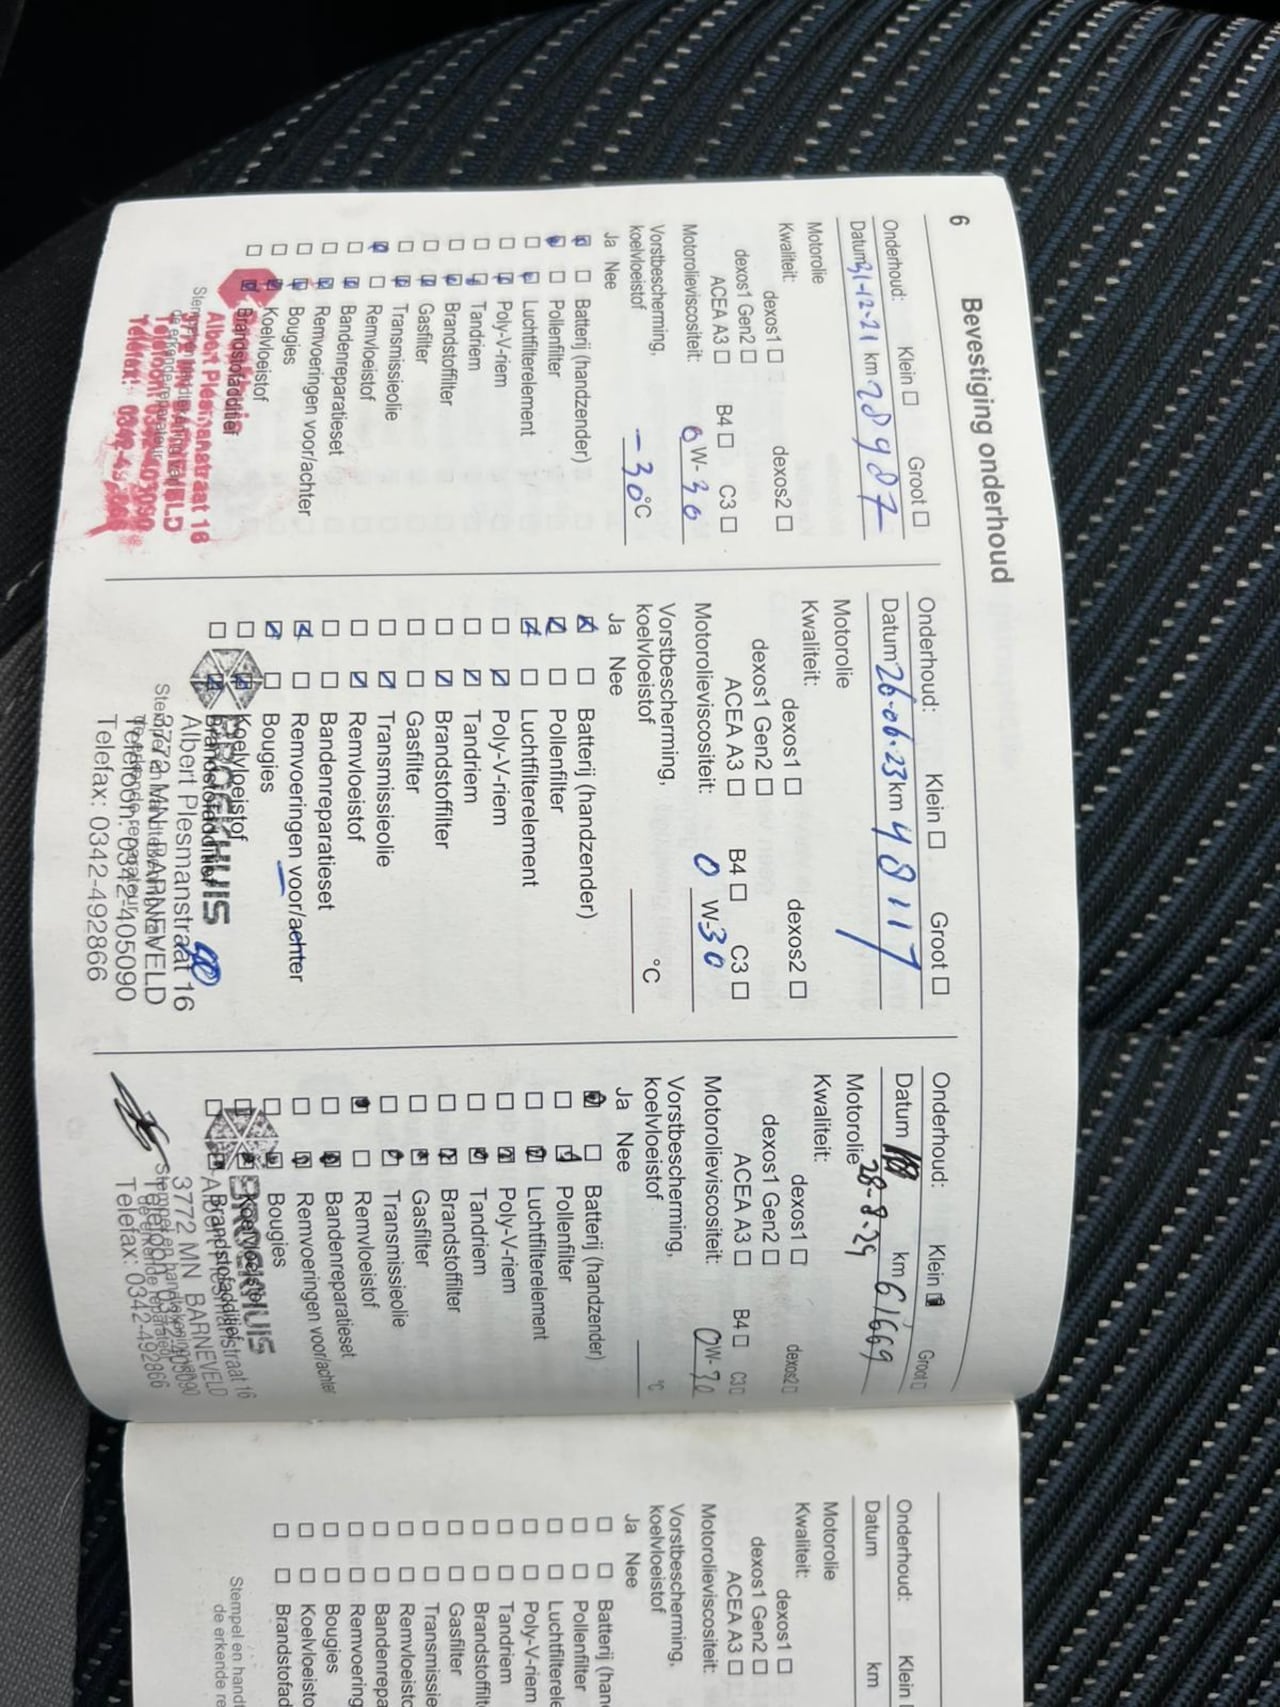 6
Bevestiging onderhoud
Onderhoud: Klein Groot
Datum 31-12-21 km 28987
Motorolie
Kwaliteit: dexos1 dexos2
dexos1 Gen2
ACEA A3 B4 C3
Motorolieviscositeit: 0 W-30
Vorstbescherming,
koelvloeistof -30 °C
Ja Nee
Batterij (handzender)
Pollenfilter
Luchtfilterelement
Poly-V-riem
Tandriem
Brandstoffilter
Gasfilter
Transmissieolie
Remvloeistof
Bandenreparatieset
Remvoeringen voor/achter
Bougies
Koelvloeistof
Brandstofadditief
Albert Plesmanstraat 16
Onderhoud: Klein Groot
Datum 26-06-23 km 48117
Motorolie
Kwaliteit: dexos1 dexos2
dexos1 Gen2
ACEA A3 B4 C3
Motorolieviscositeit: 0 W-30
Vorstbescherming,
koelvloeistof °C
Ja Nee
Batterij (handzender)
Pollenfilter
Luchtfilterelement
Poly-V-riem
Tandriem
Brandstoffilter
Gasfilter
Transmissieolie
Remvloeistof
Bandenreparatieset
Remvoeringen voor/achter
Bougies
Koelvloeistof
Brandstofadditief
BROEKHUIS
Albert Plesmanstraat 16
3772 MN BARNEVELD
Telefoon: 0342-405090
Telefax: 0342-492866
Onderhoud: Klein Groot
Datum 28-8-24 km 61669
Motorolie
Kwaliteit: dexos1 dexos2
dexos1 Gen2
ACEA A3 B4 C3
Motorolieviscositeit: 0W-30
Vorstbescherming,
koelvloeistof °C
Ja Nee
Batterij (handzender)
Pollenfilter
Luchtfilterelement
Poly-V-riem
Tandriem
Brandstoffilter
Gasfilter
Transmissieolie
Remvloeistof
Bandenreparatieset
Remvoeringen voor/achter
Bougies
Koelvloeistof
Brandstofadditief
BROEKHUIS
3772 MN BARNEVELD
Telefax: 0342-492866
Onderhoud: Klein
Datum km
Motorolie
Kwaliteit: dexos1
dexos1 Gen2
ACEA A3
Motorolieviscositeit:
Vorstbescherming,
koelvloeistof
Ja Nee
Batterij (han
Pollenfilter
Luchtfilterele
Poly-V-riem
Tandriem
Brandstoffilt
Gasfilter
Transmissie
Remvloeisto
Bandenrepa
Remvoering
Bougies
Koelvloeisto
Brandstofad
Stempel en handt
de erkende re